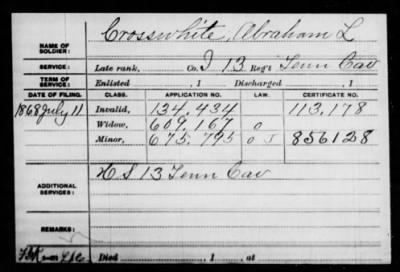 Crosswhite, Abraham L
NAME OF SOLDIER:
SERVICE: Late rank, Co. I 13 Reg't Tenn Cav
TERM OF SERVICE: Enlisted , 1 Discharged , 1
DATE OF FILING. CLASS. APPLICATION NO. LAW. CERTIFICATE NO.
1868 July 11 Invalid, 134.434 113,178
Widow, 609,167 o
Minor, 675,795 o J 856128
ADDITIONAL SERVICES: H S 13 Tenn Cav
REMARKS:
Died , 1 , at